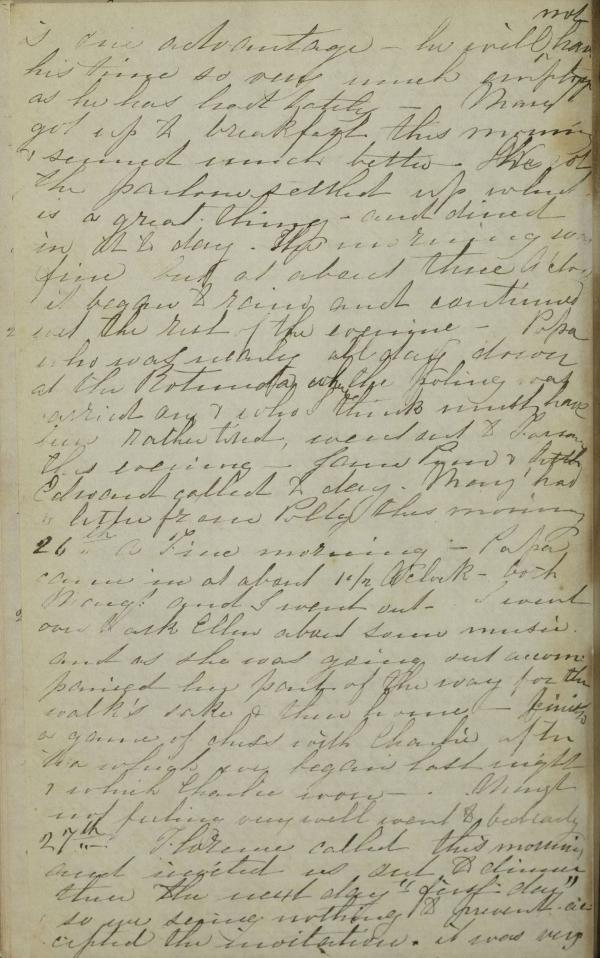 not
is one advantage – he will have
his time so very much employ
as he has had lately – Mary
got up to breakfast this morning
& seemed much better. We got
the parlour settled up which
is a great thing – and dined
in it to day. The morning was
fine but at about three O'clock
it began to rain and continued
wet the rest of the evening – Papa
who was nearly all day down
at the Rotunda where the poling was
carried on & who I think must have
been rather tired, went out to
this evening – Jane Pim & little
Edward called to day. Mary had
a letter from Polly this morning
26th A Fine morning – Papa
came in at about 1 1/2 O'Clock – both
Margt and I went out – I went
over to ask Ellen about some music
and as she was going out accom
panied her part of the way for the
walk's sake & then home – finish
a game of chess with Charlie after
tea which we began last night
& which Charlie won – . Margt
not feeling very well went to bed early
27th – Florence called this morning
and invited us out to dinner
there the next day "first-day"
so we seeing nothing to prevent ac
cepted the invitation. it was very